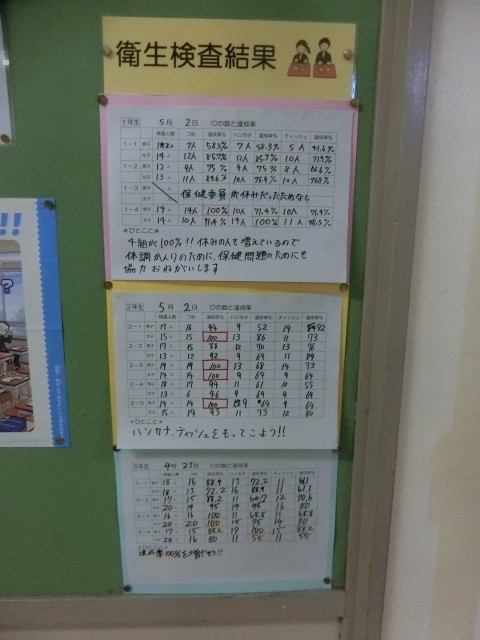 衛生検査結果
1年生 5月 2日 ○の数と達成率
検査人数 つめ 達成率% ハンカチ 達成率% ティッシュ 達成率%
1-1 男子 7人 58.3% 7人 58.3% 5人 41.6%
女子 14人 12人 85.7% 12人 85.7% 10人
1-2 男子 12人 9人 75% 9人 75% 8人
女子 13人 11人 84.6% 10人 76.9% 10人
1-3 男子 保健委員が休みだったためなし
女子
1-4 男子 14人 14人 100% 10人 71.4% 10人 71.4%
女子 14人 10人 71.4% 11人
*ひとこと*
4組が100%!!休みの人も増えているので
体調かんりのために、保健問題のためにも
協力おねがいします
2年生 5月 2日 ○の数と達成率
検査人数 つめ 達成率% ハンカチ 達成率% ティッシュ 達成率%
2-1 男子 17人 16 94 9 52 14 82
女子 15人 15 100 13 86 11 73
2-2 男子 17人 15 88 12 70 13 76
女子 13人 12 92 9 69 11 84
2-3 男子 19人 19 100 13 68 14 73
女子 14人 14 100 9 64 9 64
2-4 男子 18人 17 94 11 61 10 55
女子 13人 6 46 9 69 9 69
2-5 男子 14人 14 100 9 64 9 64
女子 15人 14 93 11 73 12 80
*ひとこと*
ハンカチ、ティッシュをもってこよう!!
3年生 4月 23日 ○の数と達成率
検査人数 つめ 達成率% ハンカチ 達成率% ティッシュ 達成率%
18人 16 88.9 13 72.2 11 61.1
18人 13 72.2 16 88.9 11 61.1
17人 15 88.2 11 64.7 12 70.6
20人 19 95 19 95 16 80
16人 16 100 11 68.8 11 68.8
20人 20 100 15 75
17人 15 88.2 17 100 15 88.2
20人 16 80 11 55 11 55
!!